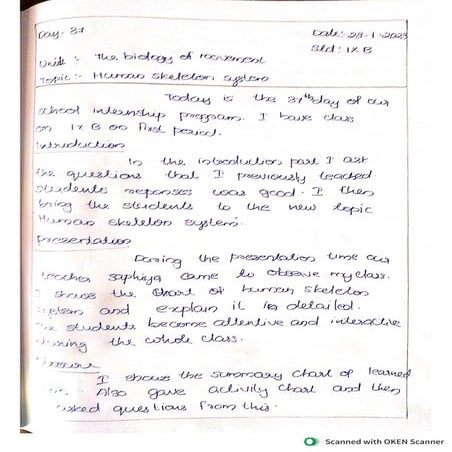 Day- 37 Date:- 28-1-2023
Std : IX B
Unit :- The biology of movement
Topic :- Human skeleton system
Today is the 37th day of our
school internship program. I have class
on IX B on first period.
Introduction
In the introduction part I ask
the questions that I previously teached.
students reponses was good. I then
bring the students to the new topic
Human skeleton system.
Presentation
During the presentation time our
teacher saphiya came to observe my class.
I shows the chart of human skeleton
system and explain it in detailed.
The students become attentive and interactive
during the whole class.
I shows the summary chart of learned
Also gave activity chart and then
asked questions from this.
Scanned with OKEN Scanner